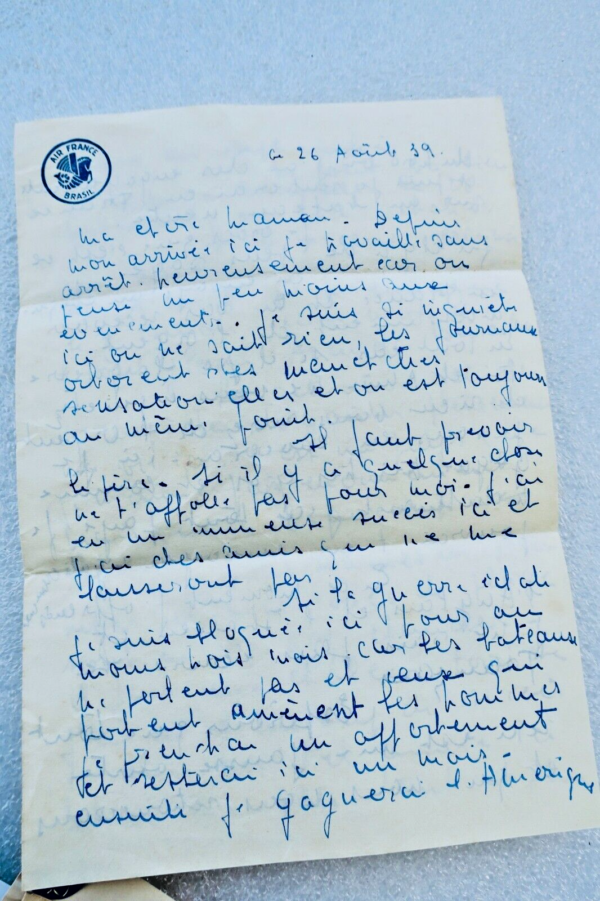 AIR FRANCE
BRASIL
ce 26 Août 39.
Ma chère Maman. Depuis
mon arrivée ici je travaille sans
arrêt. heureusement car on
pense un peu moins aux
événements. je suis si inquiète
ici on ne sait rien, les journaux
arborent des manchettes
sensationnelles et on est toujours
au même point.
Il faut prévoir
le pire. Si il y a quelque chose
ne t'affole pas pour moi. j'ai
eu un immense succès ici et
j'ai des amis qui ne me
laisseront pas
Si la guerre éclate
je suis bloquée ici pour au
moins trois mois car les bateaux
ne partent pas et ceux qui
partent amènent les hommes
je prendrai un appartement
et resterai ici un mois -
ensuite je gagnerai l'Amérique